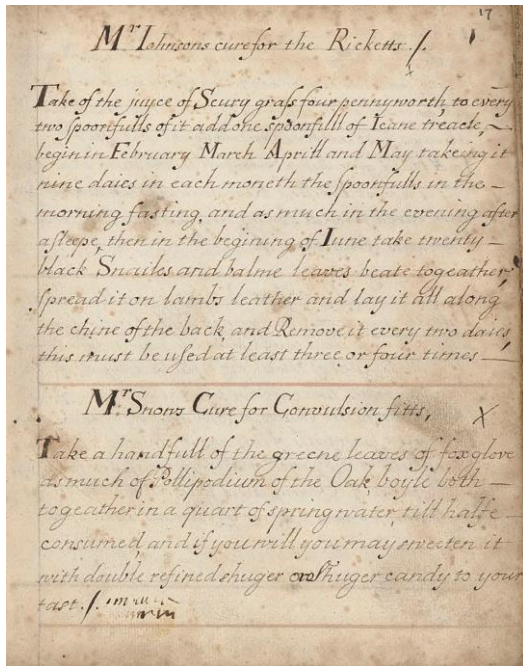 17
Mr Iohnsons cure for the Ricketts ./.
Take of the juyce of Scury grass four pennyworth, to every
two spoonfulls of it add one spoonfull of Ieane treacle,
begin in February March Aprill and May takeing it
nine daies in each moneth the spoonfulls in the –
morning fasting, and as much in the evening after
asleepe, then in the begining of Iune take twenty –
black Snailes and balme leaves beate togeather,
spread it on lambs leather and lay it all along
the chine of the back, and Remove it every two daies,
this must be used at least three or four times –
Mr Snows Cure for Convulsion fitts,
Take a handfull of the greene leaves of foxglove
as much of Pollipodium of the Oak, boyle both –
togeather in a quart of spring water, till halfe –
consumed and if you will you may sweeten it
with double refined shuger or shuger candy to your
tast ./.